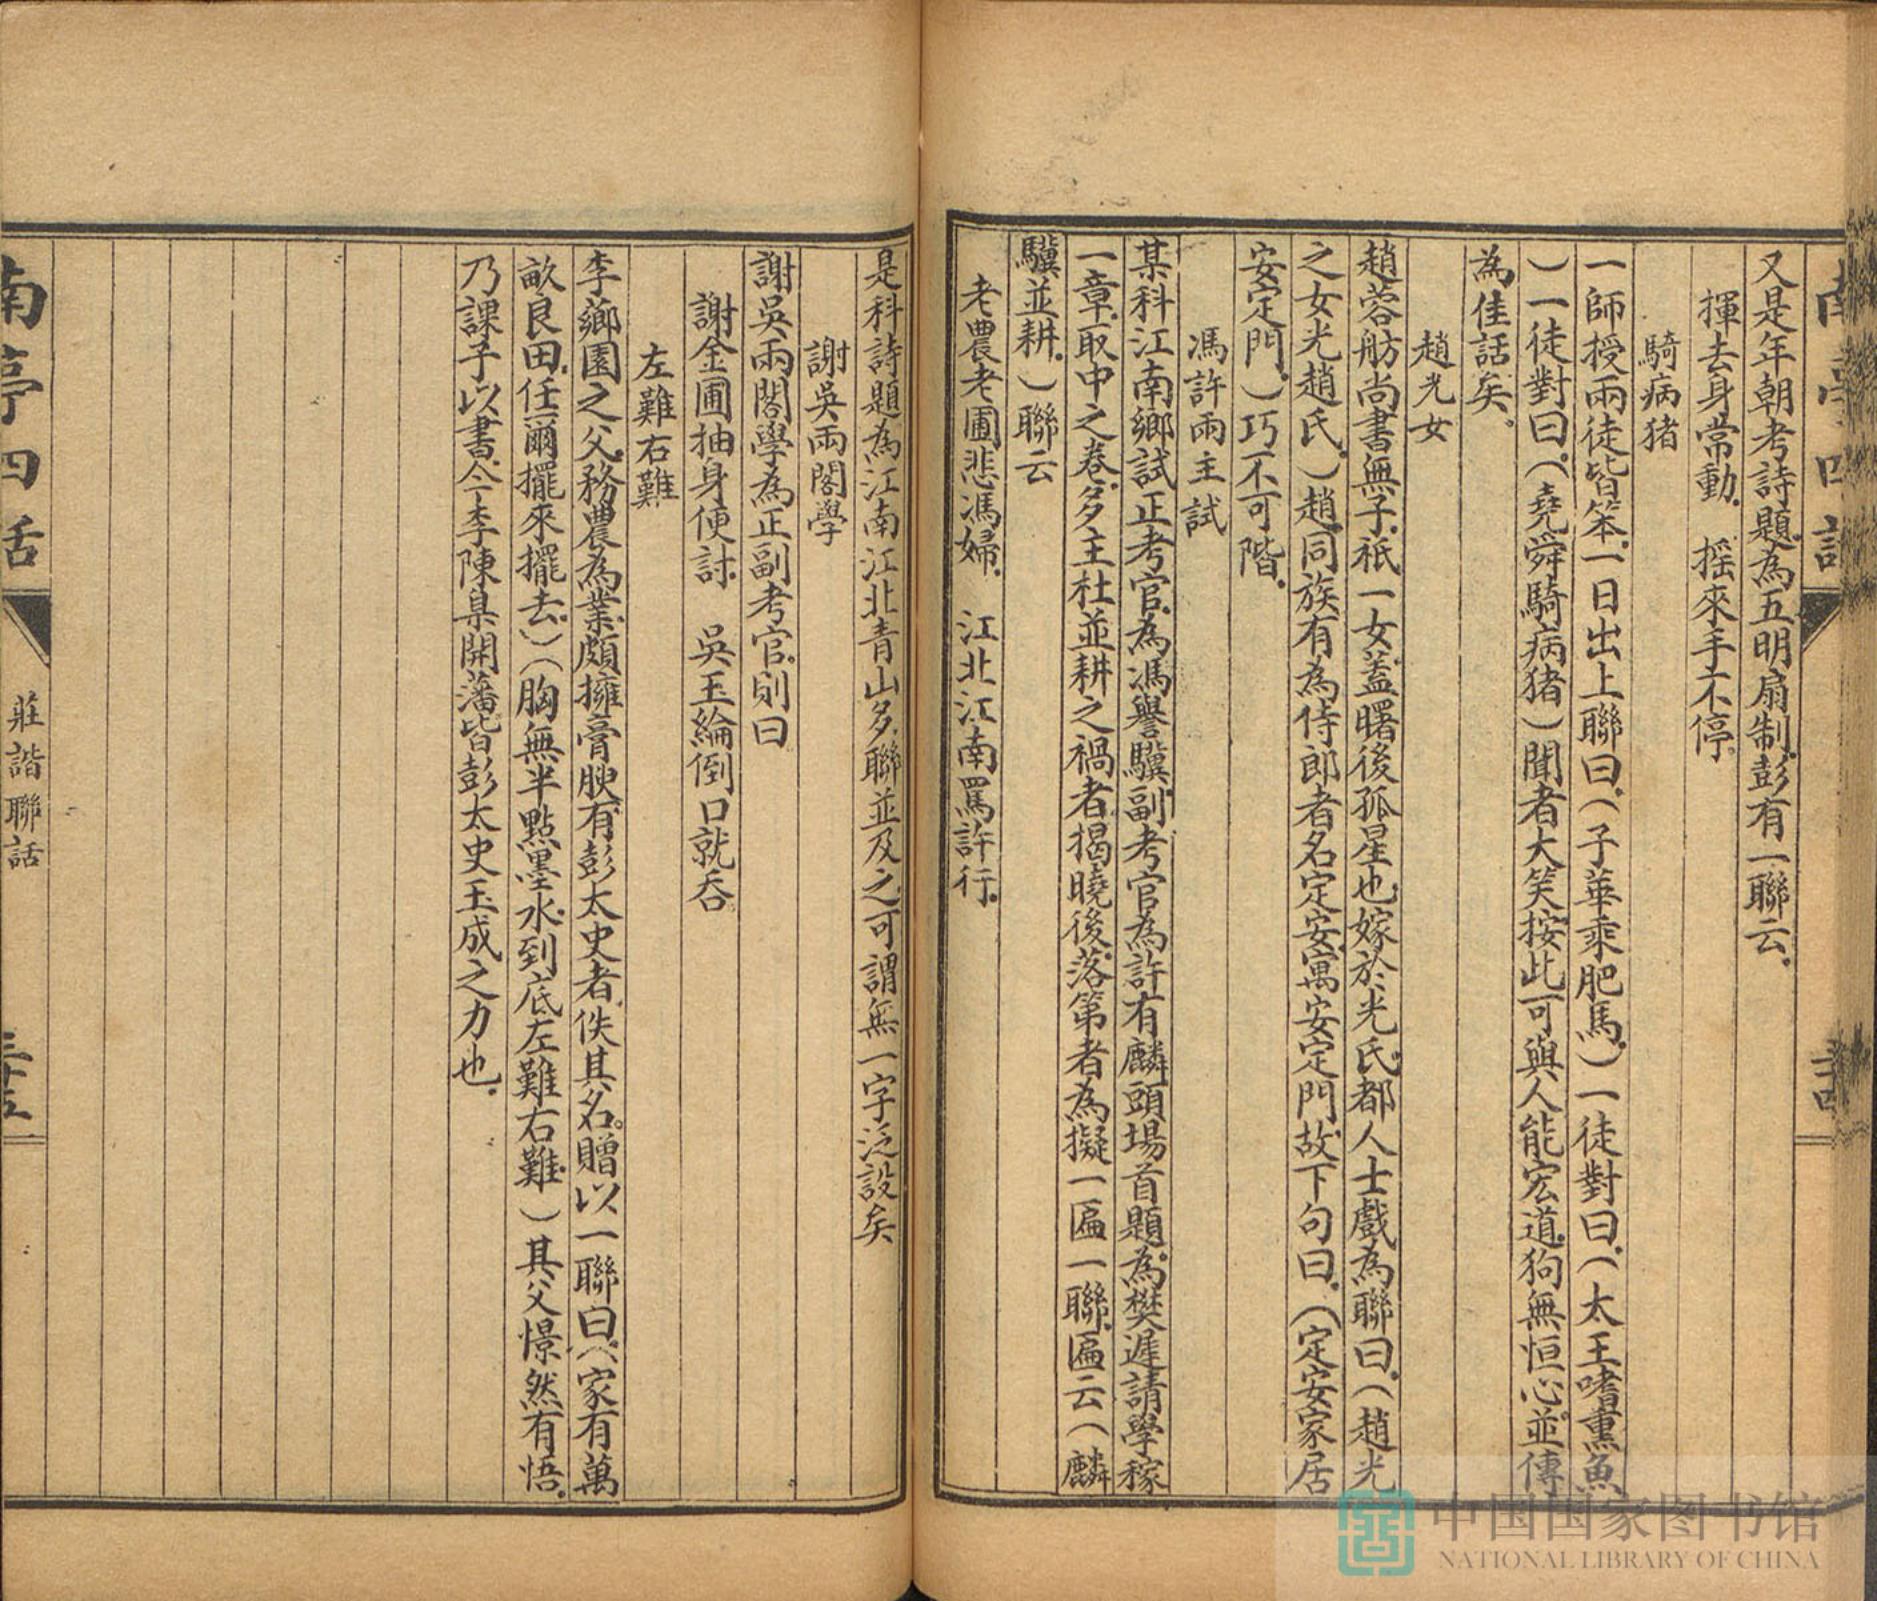 又是年朝考詩題為五明扇制彭有一聯云
揮去身常動　搖來手不停
騎病猪
一師授兩徒皆笨一日出上聯曰（子華乘肥馬）一徒對曰（太王嗜熏魚
）一徒對曰（堯舜騎病猪）聞者大笑按此可與人能宏道狗無恒心並傳
為佳話矣
趙光女
趙蓉舫尚書無子祇一女蓋曙後孤星也嫁於光氏都人士戲為聯曰（趙光
之女光趙氏）趙同族有為侍郎者名定安寓安定門故下句曰（定安家居
安定門）巧不可階
馮許兩主試
某科江南鄉試正考官為馮譽驥副考官為許有麟頭場首題為樊遲請學稼
一章取中之卷多主杜並耕之禍者揭曉後落第者為擬一匾一聯匾云（麟
驥並耕）聯云
老農老圃悲馮婦　江北江南罵許行
是科詩題為江南江北青山多聯並及之可謂無一字泛設矣
謝吳兩閣學
謝吳兩閣學為正副考官則曰
謝金圃抽身便討　吳玉綸倒口就吞
左難右難
李薌園之父務農為業頗擁膏腴有彭太史者佚其名贈以一聯曰（家有萬
畝良田任爾擺來擺去）（胸無半點墨水到底左難右難）其父憬然有悟
乃課子以書今李陳臬開藩皆彭太史玉成之力也
南亭四話
莊諧聯話
三十五
中国国家图书馆
NATIONAL LIBRARY OF CHINA